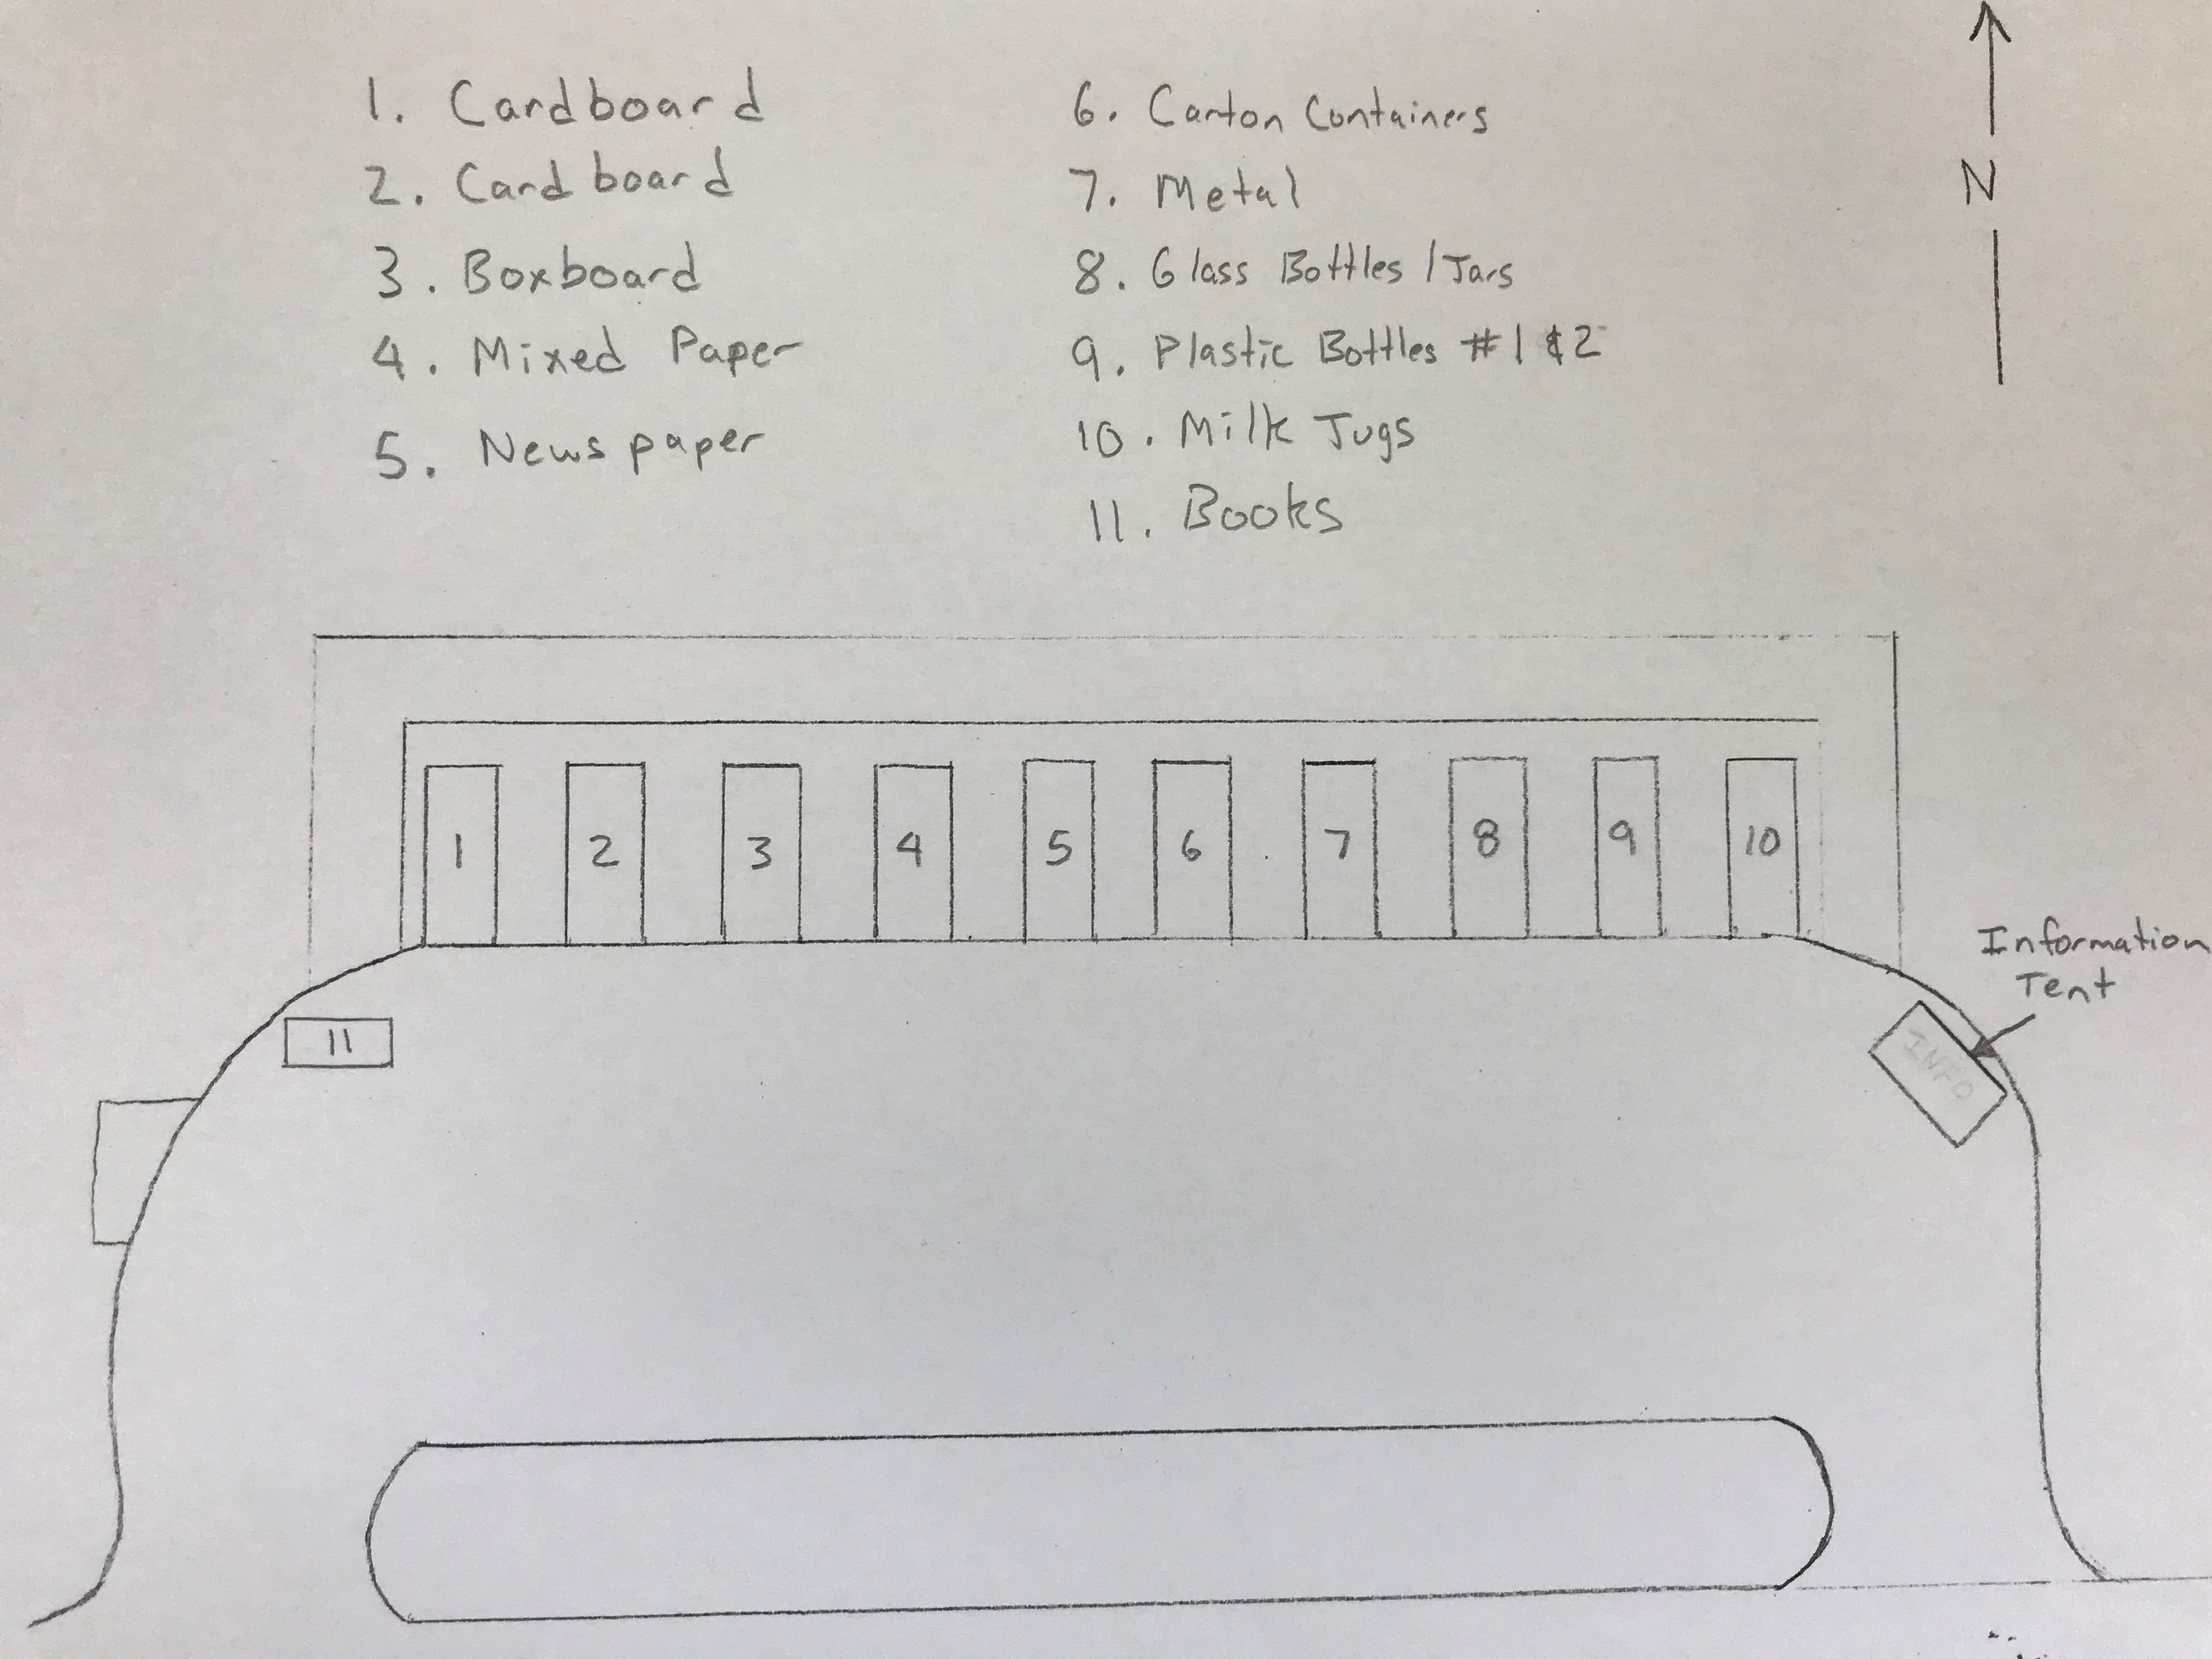 1. Cardboard
2. Cardboard
3. Boxboard
4. Mixed Paper
5. Newspaper
6. Carton Containers
7. Metal
8. Glass Bottles / Jars
9. Plastic Bottles #1 & 2
10. Milk Jugs
11. Books
N
1
2
3
4
5
6
7
8
9
10
Information
Tent
INFO
11